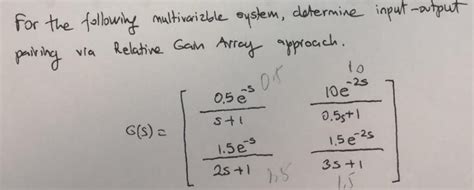 For the following multivarizble system, determine input-output
pairing via Relative Gain Array approach.
0.5 10
0.5e^-s 10e^-2s
s+1 0.5s+1
G(s) =
1.5e^-s 1.5e^-2s
2s+1 3s+1
1.5 1.5